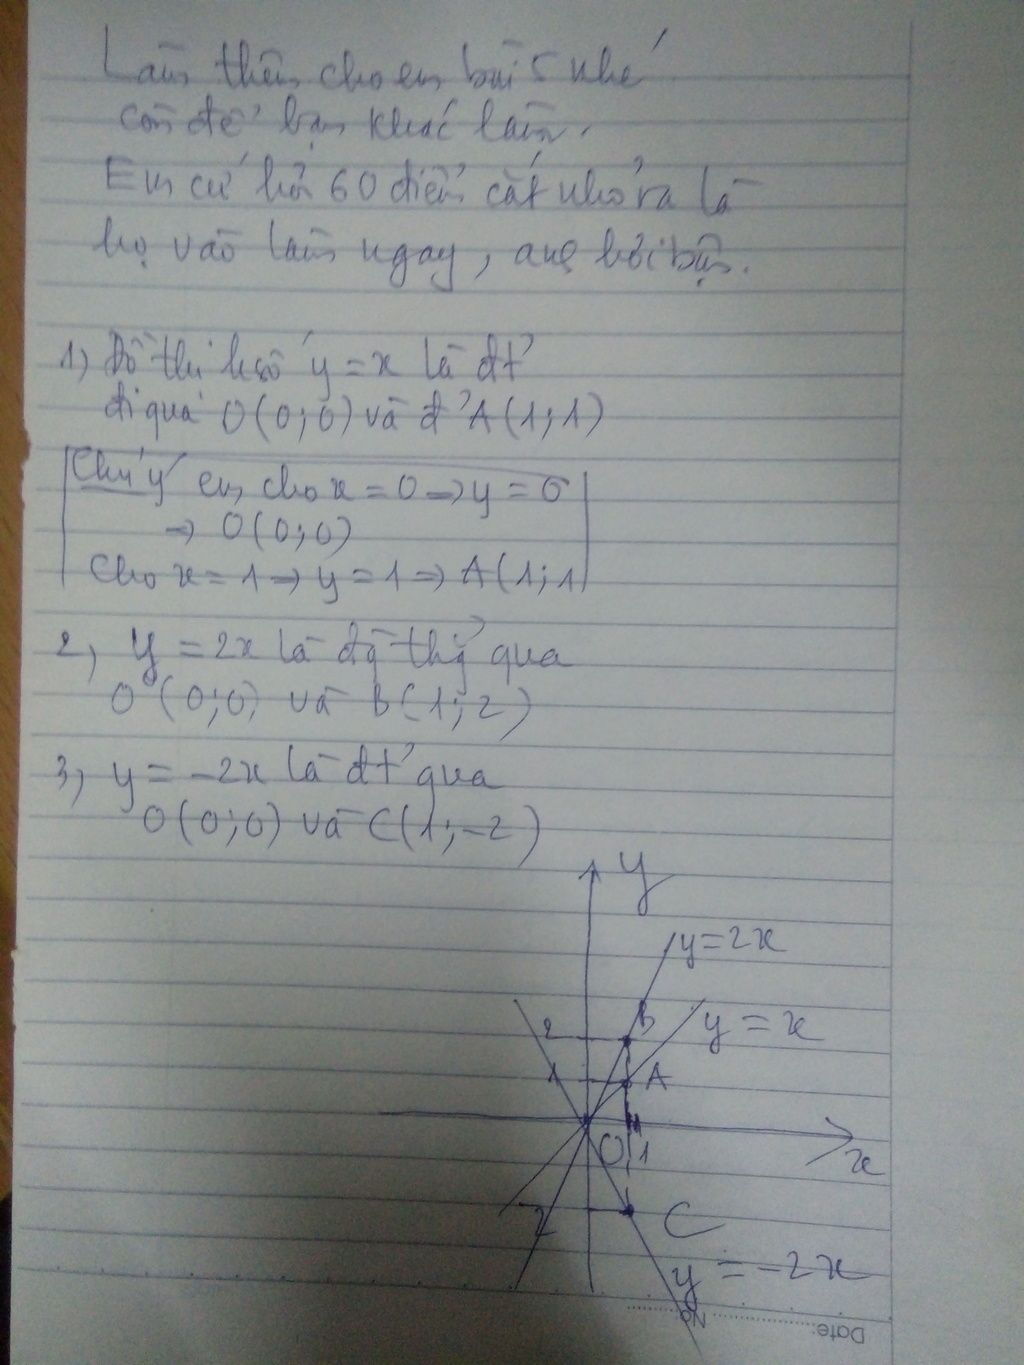 Làm thêm cho em bài 5 nhé
còn để bạn khác làm.
Em cứ hỏi 60 điểm cắt nhỏ ra là
họ vào làm ngay, anh hơi bận.
1) Đồ thị hsố y = x là đt
đi qua O(0;0) và đ' A(1;1)
Chú ý em cho x = 0 → y = 0
→ O(0;0)
Cho x = 1 → y = 1 → A(1;1
2, y = 2x là đg thg qua
O (0;0) và B(1;2)
3, y = -2x là đt qua
O(0;0) và C(1;-2)
y
y=2x
B
2
y = x
1 A
O 1
x
2 C
y = -2x
No
Date: